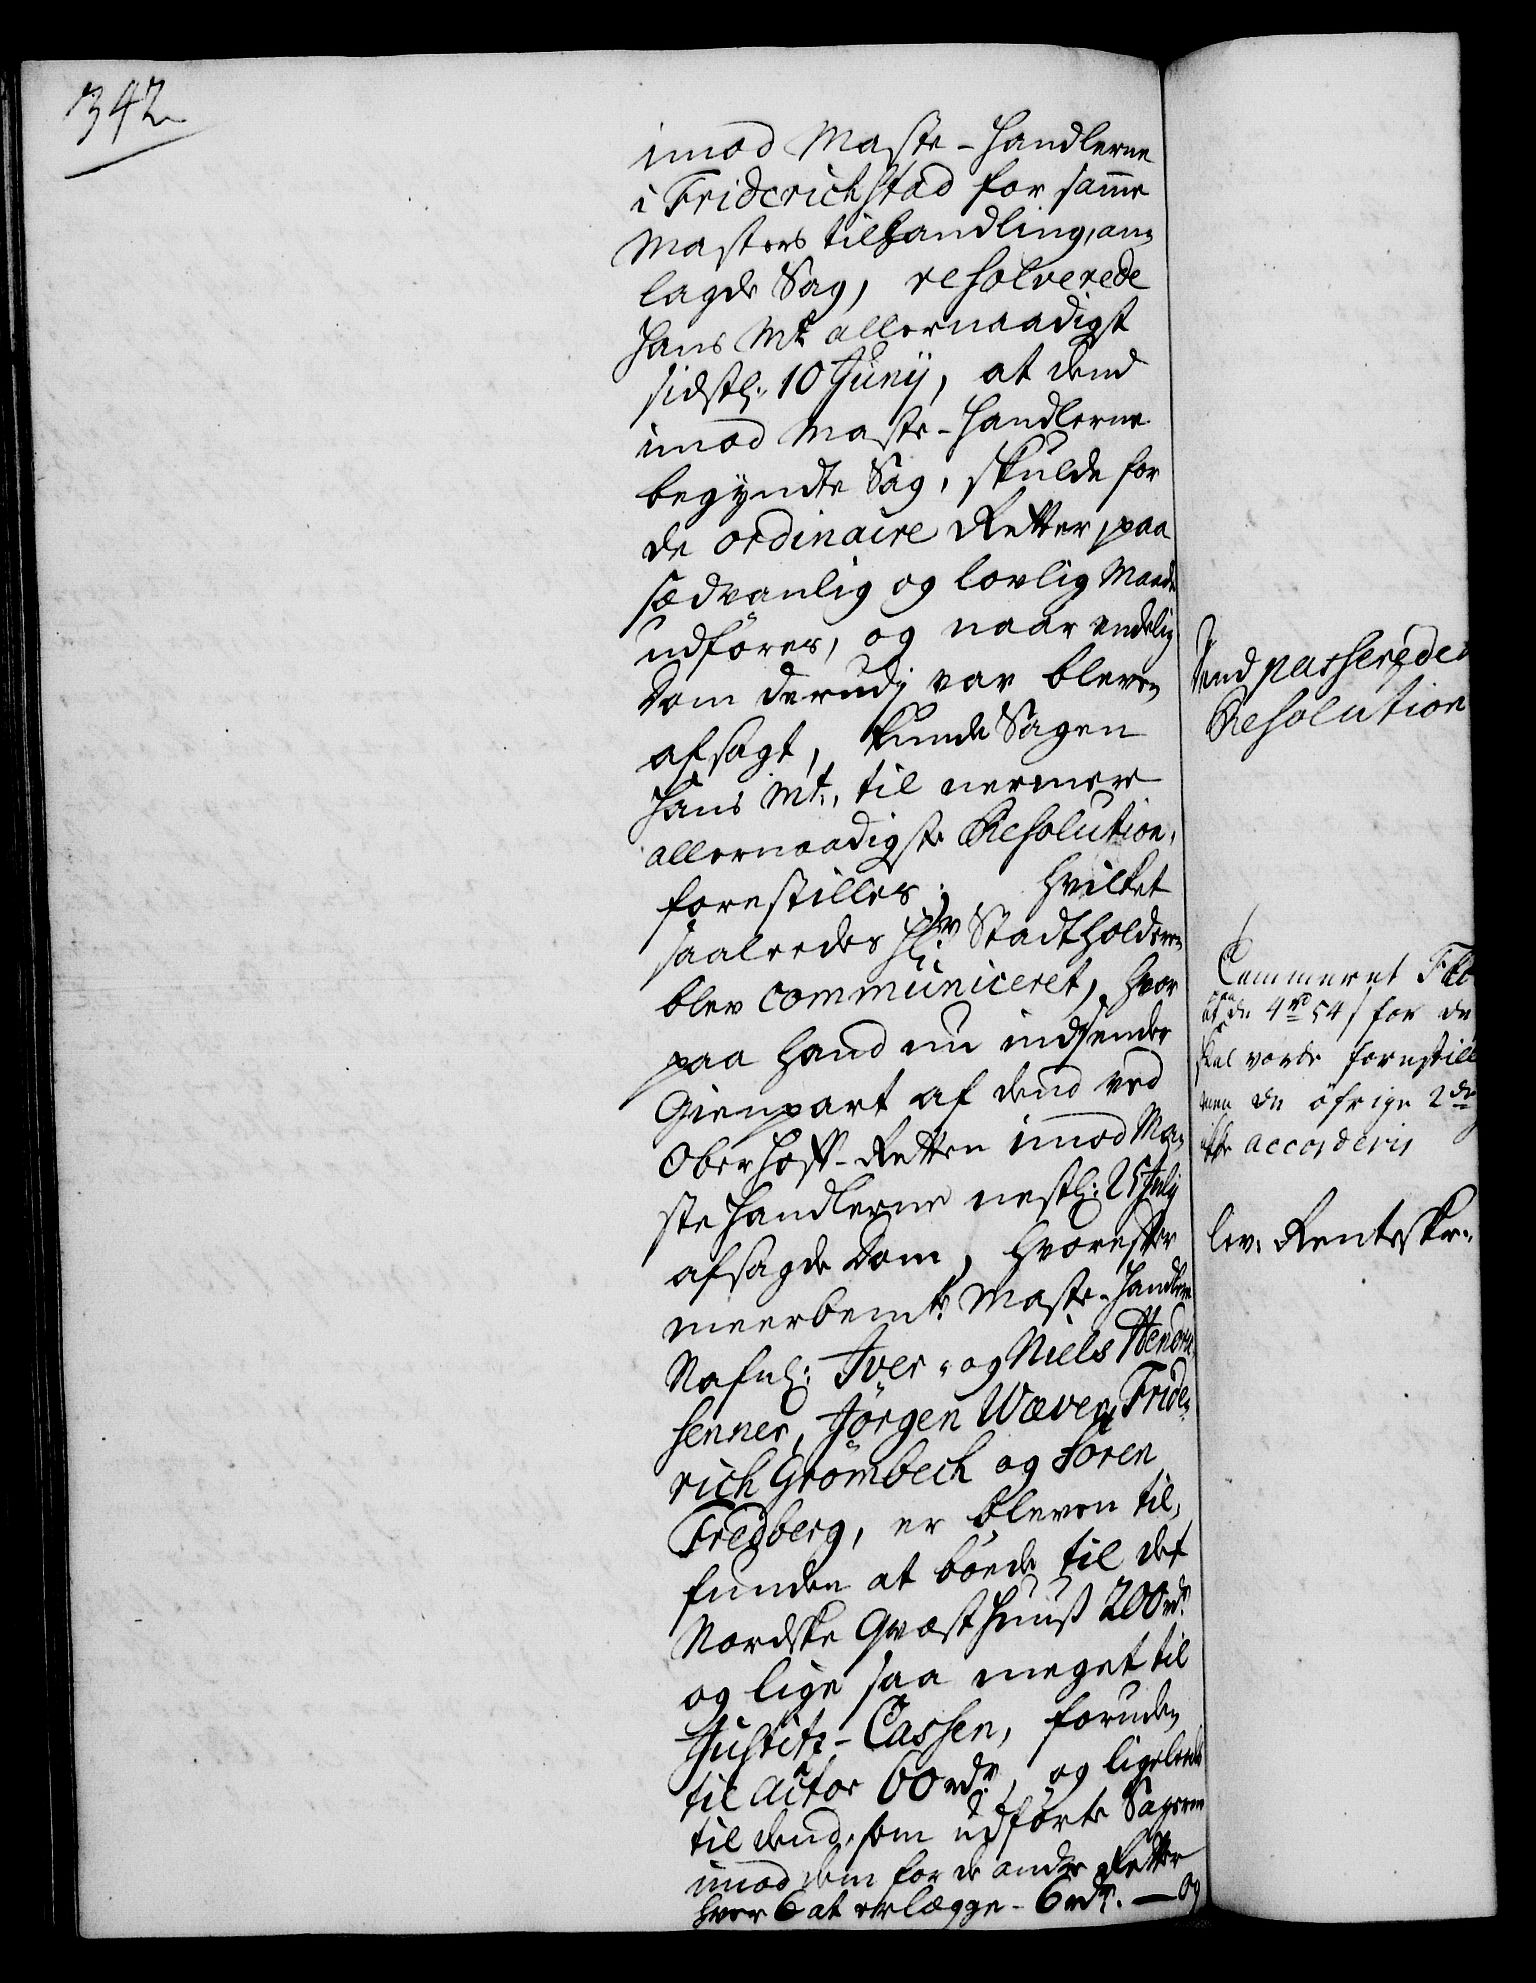 342.
imod Maste-Handlerne
i Friderichstad for samme
Masters tilhandling, an-
lagde Sag, resolverede
Hans Mt. allernaadigst
sidstl: 10 Junij, at dend
imod Maste-Handlerne
begyndte Sag, skulde for
de ordinaire Retter, paa
sædvanlig og lovlig Maade
udføres, og naar endelig
Dom derudj var bleven
afsagt, kunde Sagen
Hans Mt. til nermere
allernaadigste Resolution,
forestilles; hvilket
saaleedes Hr Stadtholderen
blev communiceret, hvor
paa hand nu indsender
Gienpart af dend ved
Oberhoff-Retten imod Ma-
ste Handlerne nestl: 25 July
afsagde Dom, hvorefter
meerbemte Maste-Handlere
Nafnl: Iver- og Niels Hendrich-
senner, Jörgen Wæver, Fride-
rich Grömbech og Sören
Fredberg, er bleven til-
funden at böede til det
Nordske Qvæsthuuß 200 rdr.
og lige saa meget til
Justitz-Cassen, foruden
til Actor 60 rdr, og ligeleedes
til dend, som udførte Sagerne
imod dem for de andre Retter
hver 6 at erlægge - 6 rdr. — og
Dend passerede
Resolution
Cammeret
de 4 rd 54 s for de
skal vorde forestill
men de öfrige 2de
ikke accorderis
lev: Renteskr: